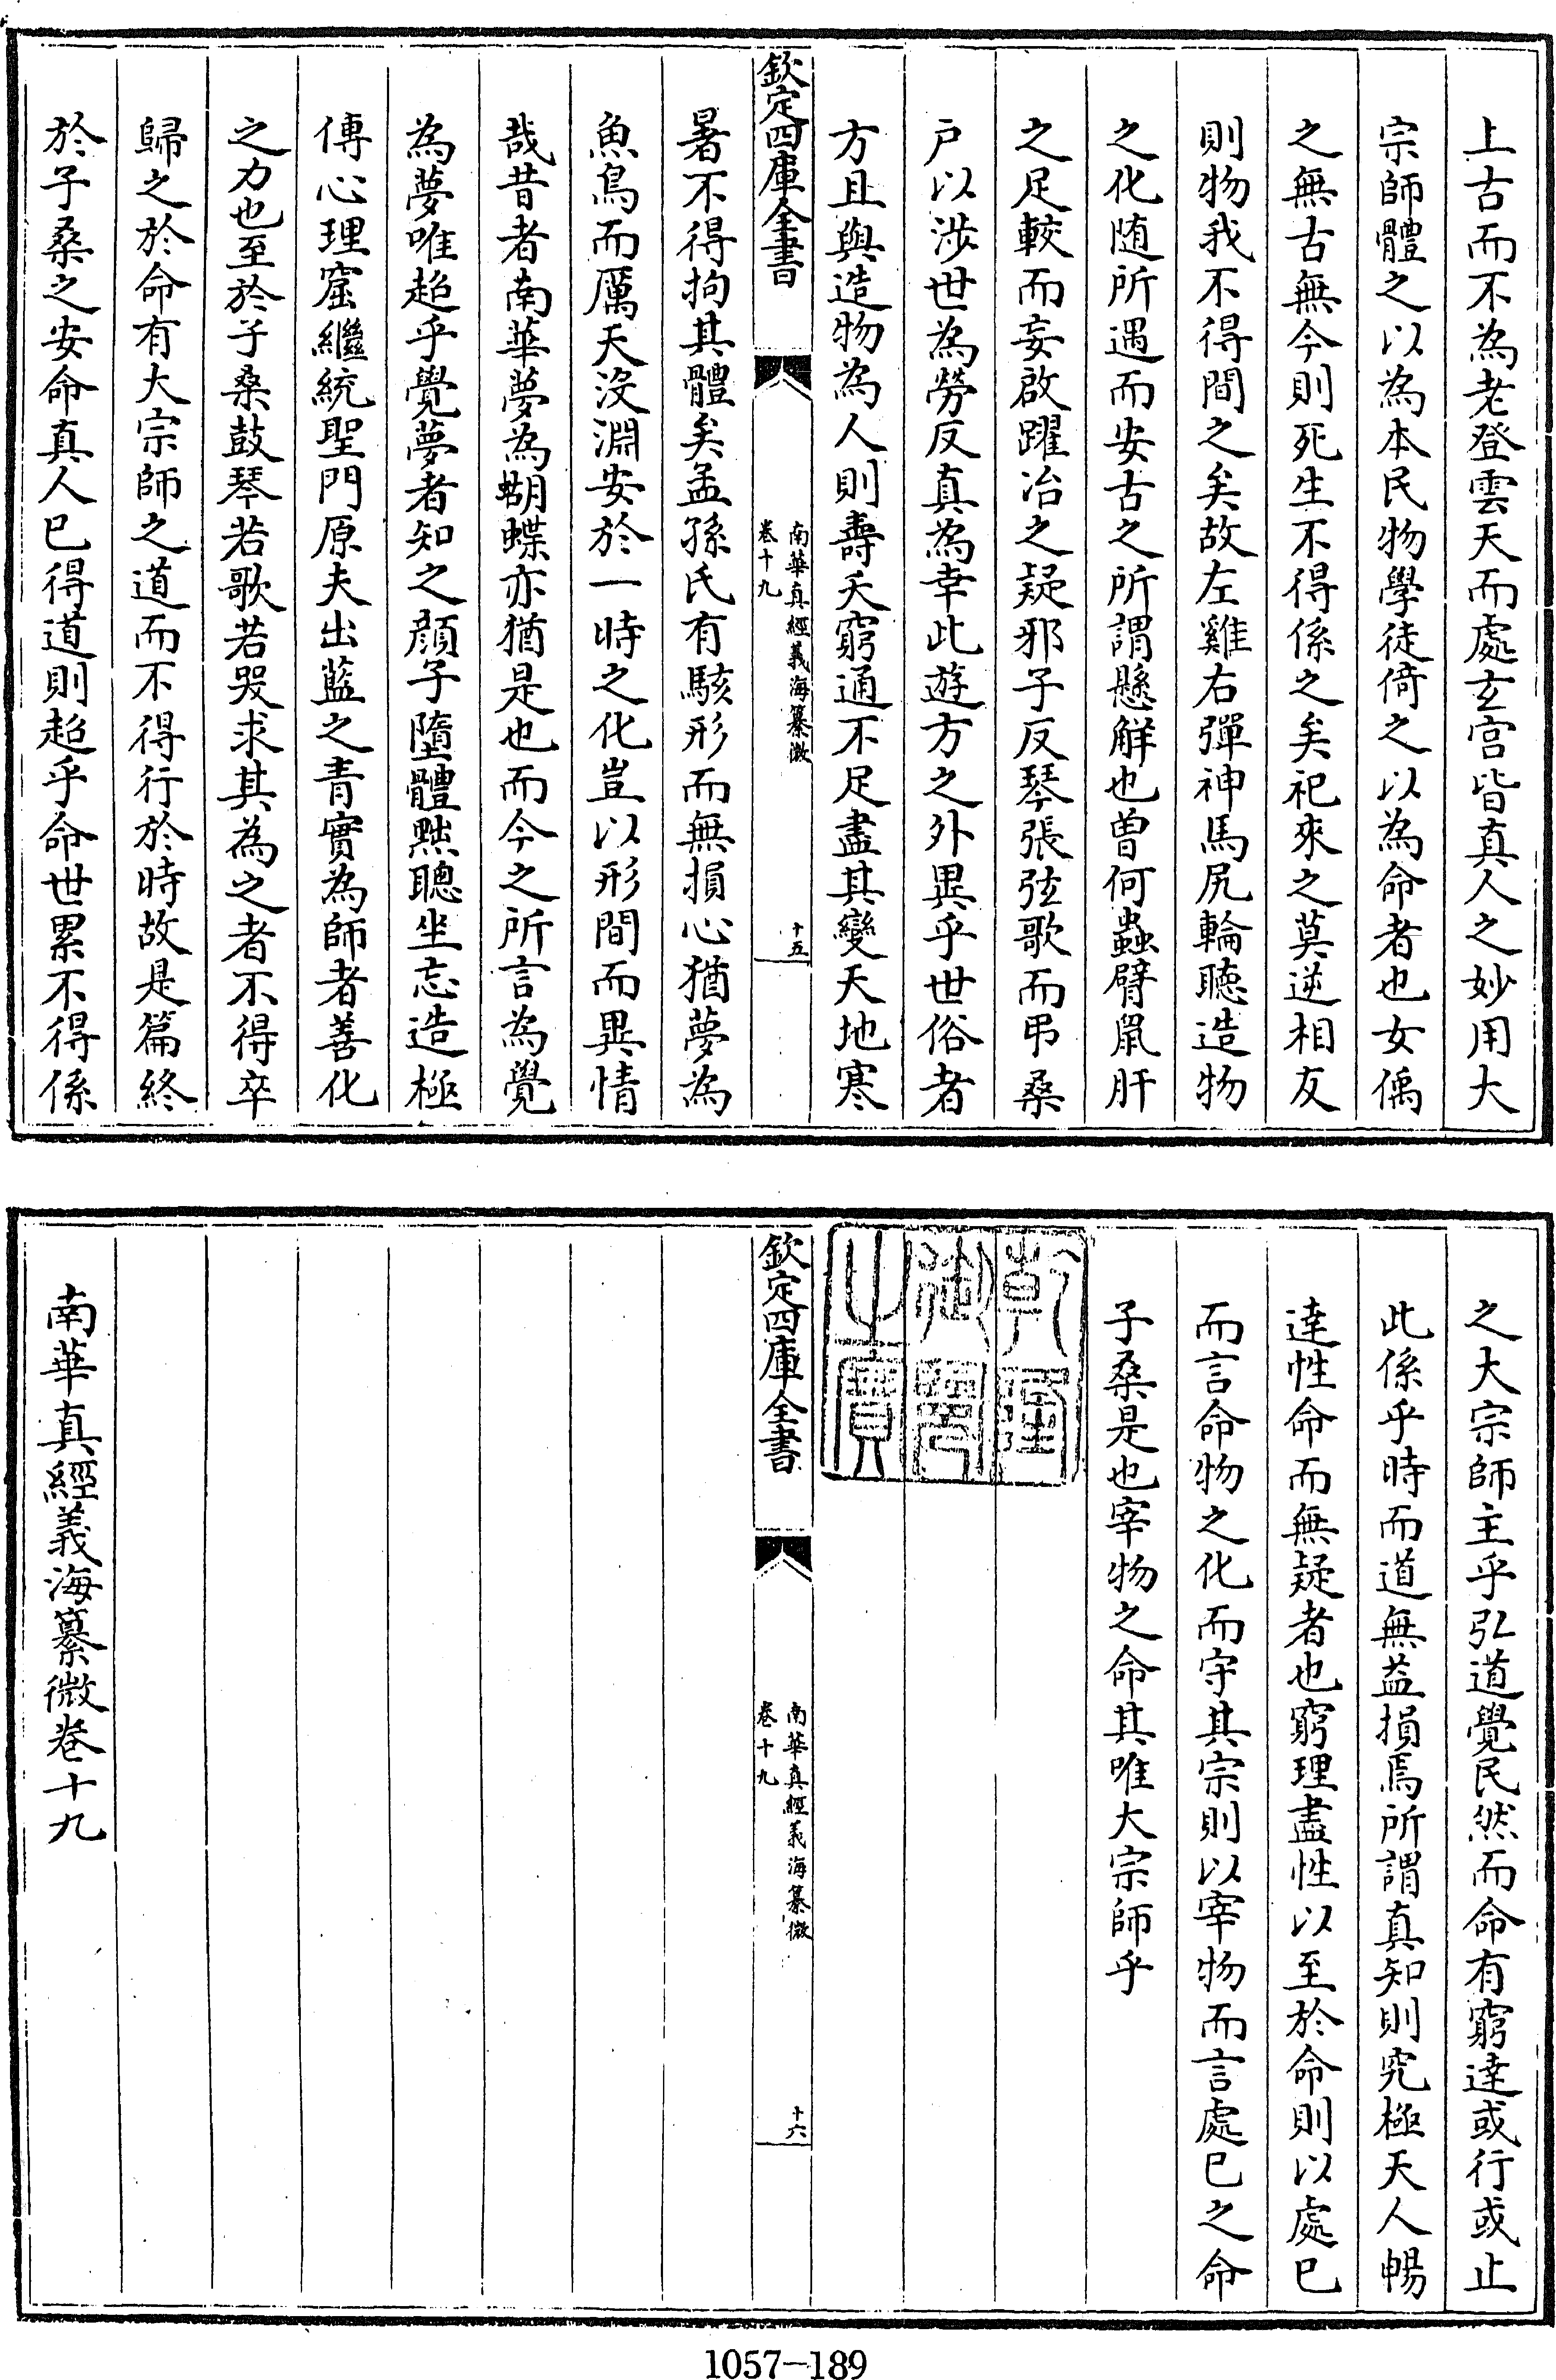 上古而不為老登雲天而處玄宫皆真人之妙用大
宗師體之以為本民物學徒倚之以為命者也女偊
之無古無今則死生不得係之矣祀來之莫逆相友
則物我不得間之矣故左雞右彈神馬尻輪聽造物
之化随所遇而安古之所謂懸解也曽何蟲臂鼠肝
之足較而妄啟躍冶之疑邪子反琴張弦歌而弔桑
戸以涉世為勞反真為幸此遊方之外異乎世俗者
方且與造物為人則壽夭窮通不足盡其變天地寒
欽定四庫全書
南華真經義海纂微
卷十九
十五
暑不得拘其體矣孟孫氏有駭形而無損心猶夢為
魚鳥而厲天沒淵安於一時之化豈以形間而異情
哉昔者南華夢為蝴蝶亦猶是也而今之所言為覺
為夢唯超乎覺夢者知之顔子墮體黜聰坐忘造極
傳心理窟繼統聖門原夫出藍之青實為師者善化
之力也至於子桑鼓琴若歌若哭求其為之者不得卒
歸之於命有大宗師之道而不得行於時故是篇終
於子桑之安命真人已得道則超乎命世累不得係
之大宗師主乎弘道覺民然而命有窮達或行或止
此係乎時而道無益損焉所謂真知則究極天人暢
達性命而無疑者也窮理盡性以至於命則以處已
而言命物之化而守其宗則以宰物而言處已之命
子桑是也宰物之命其唯大宗師乎
乾隆
御覽
之寳
欽定四庫全書
南華真經義海纂微
卷十九
十六
南華真經義海纂微卷十九
1057-189